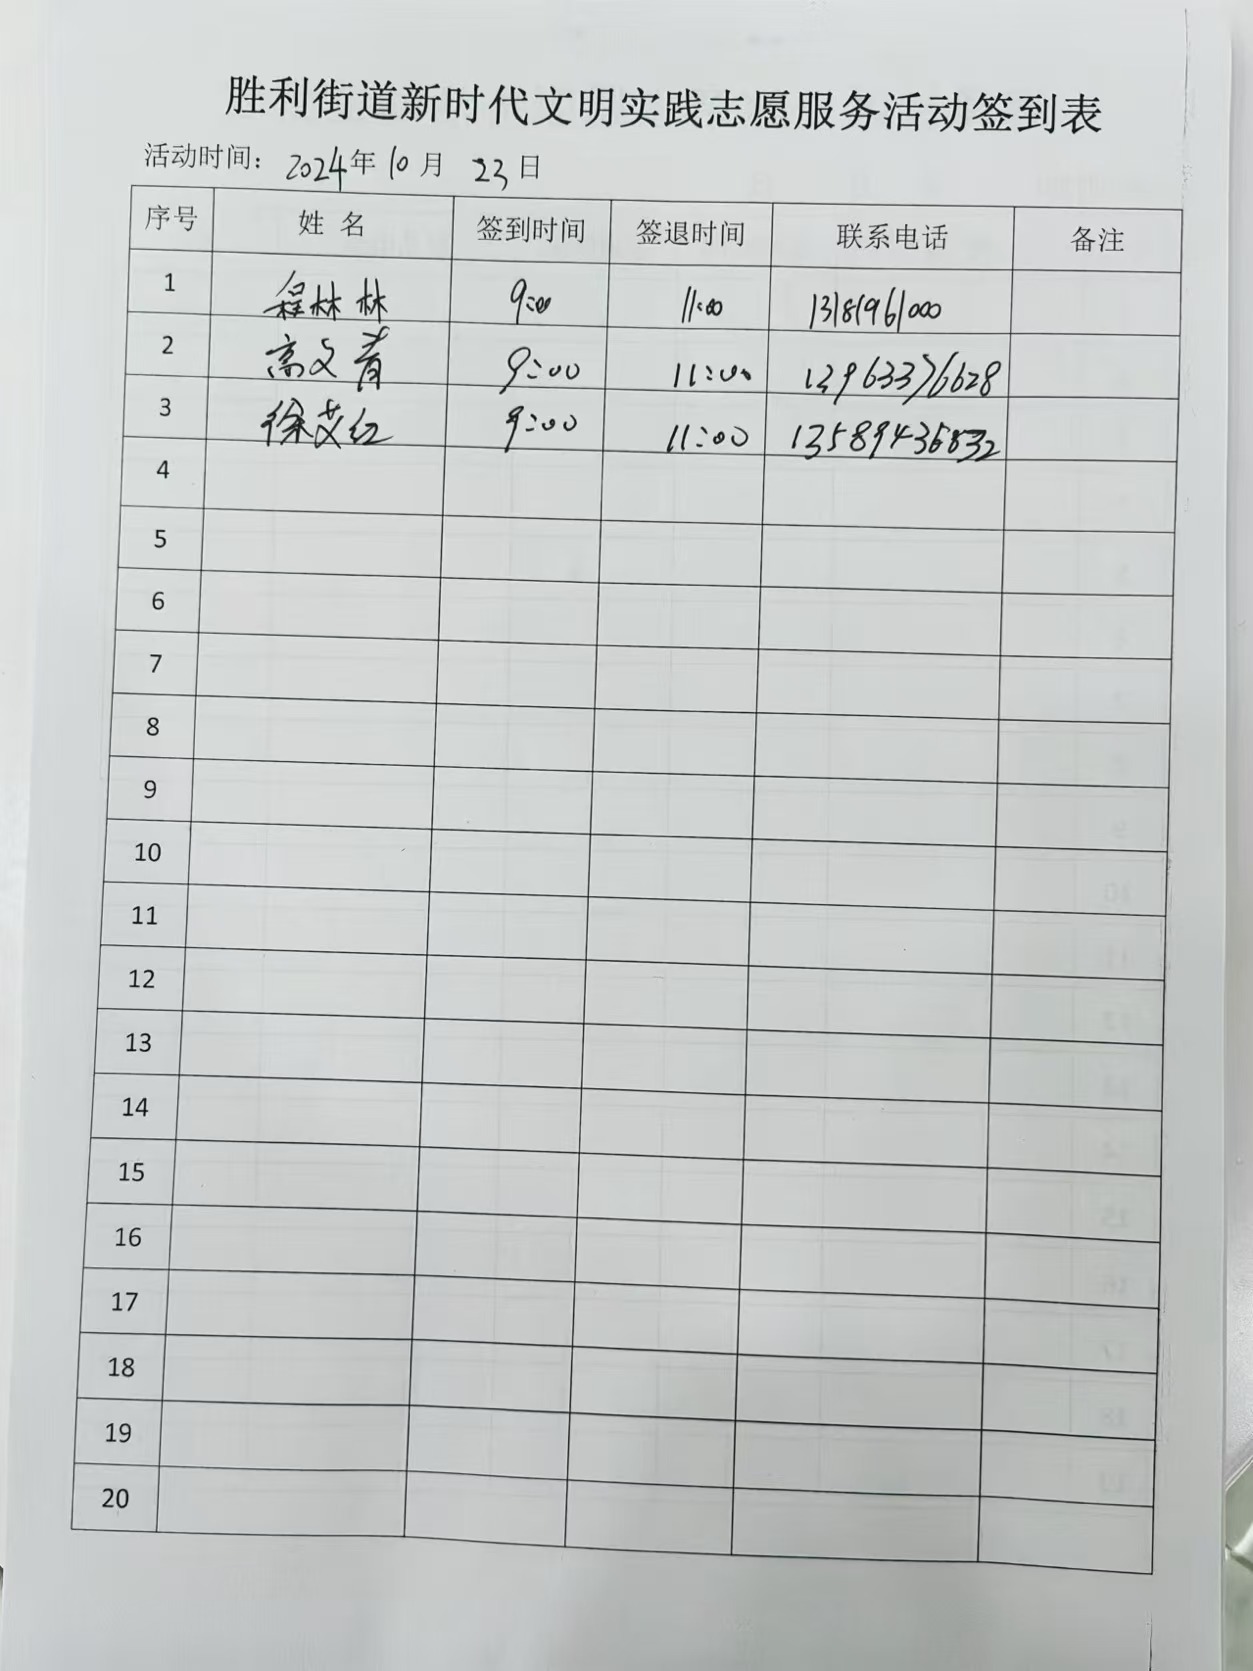 胜利街道新时代文明实践志愿服务活动签到表
活动时间：2024年10月 23日
序号 姓 名 签到时间 签退时间 联系电话 备注
1 程林林 9:00 11:00 13181961000
2 高文青 9:00 11:00
3 徐艾红 9:00 11:00 13589436832
4
5
6
7
8
9
10
11
12
13
14
15
16
17
18
19
20